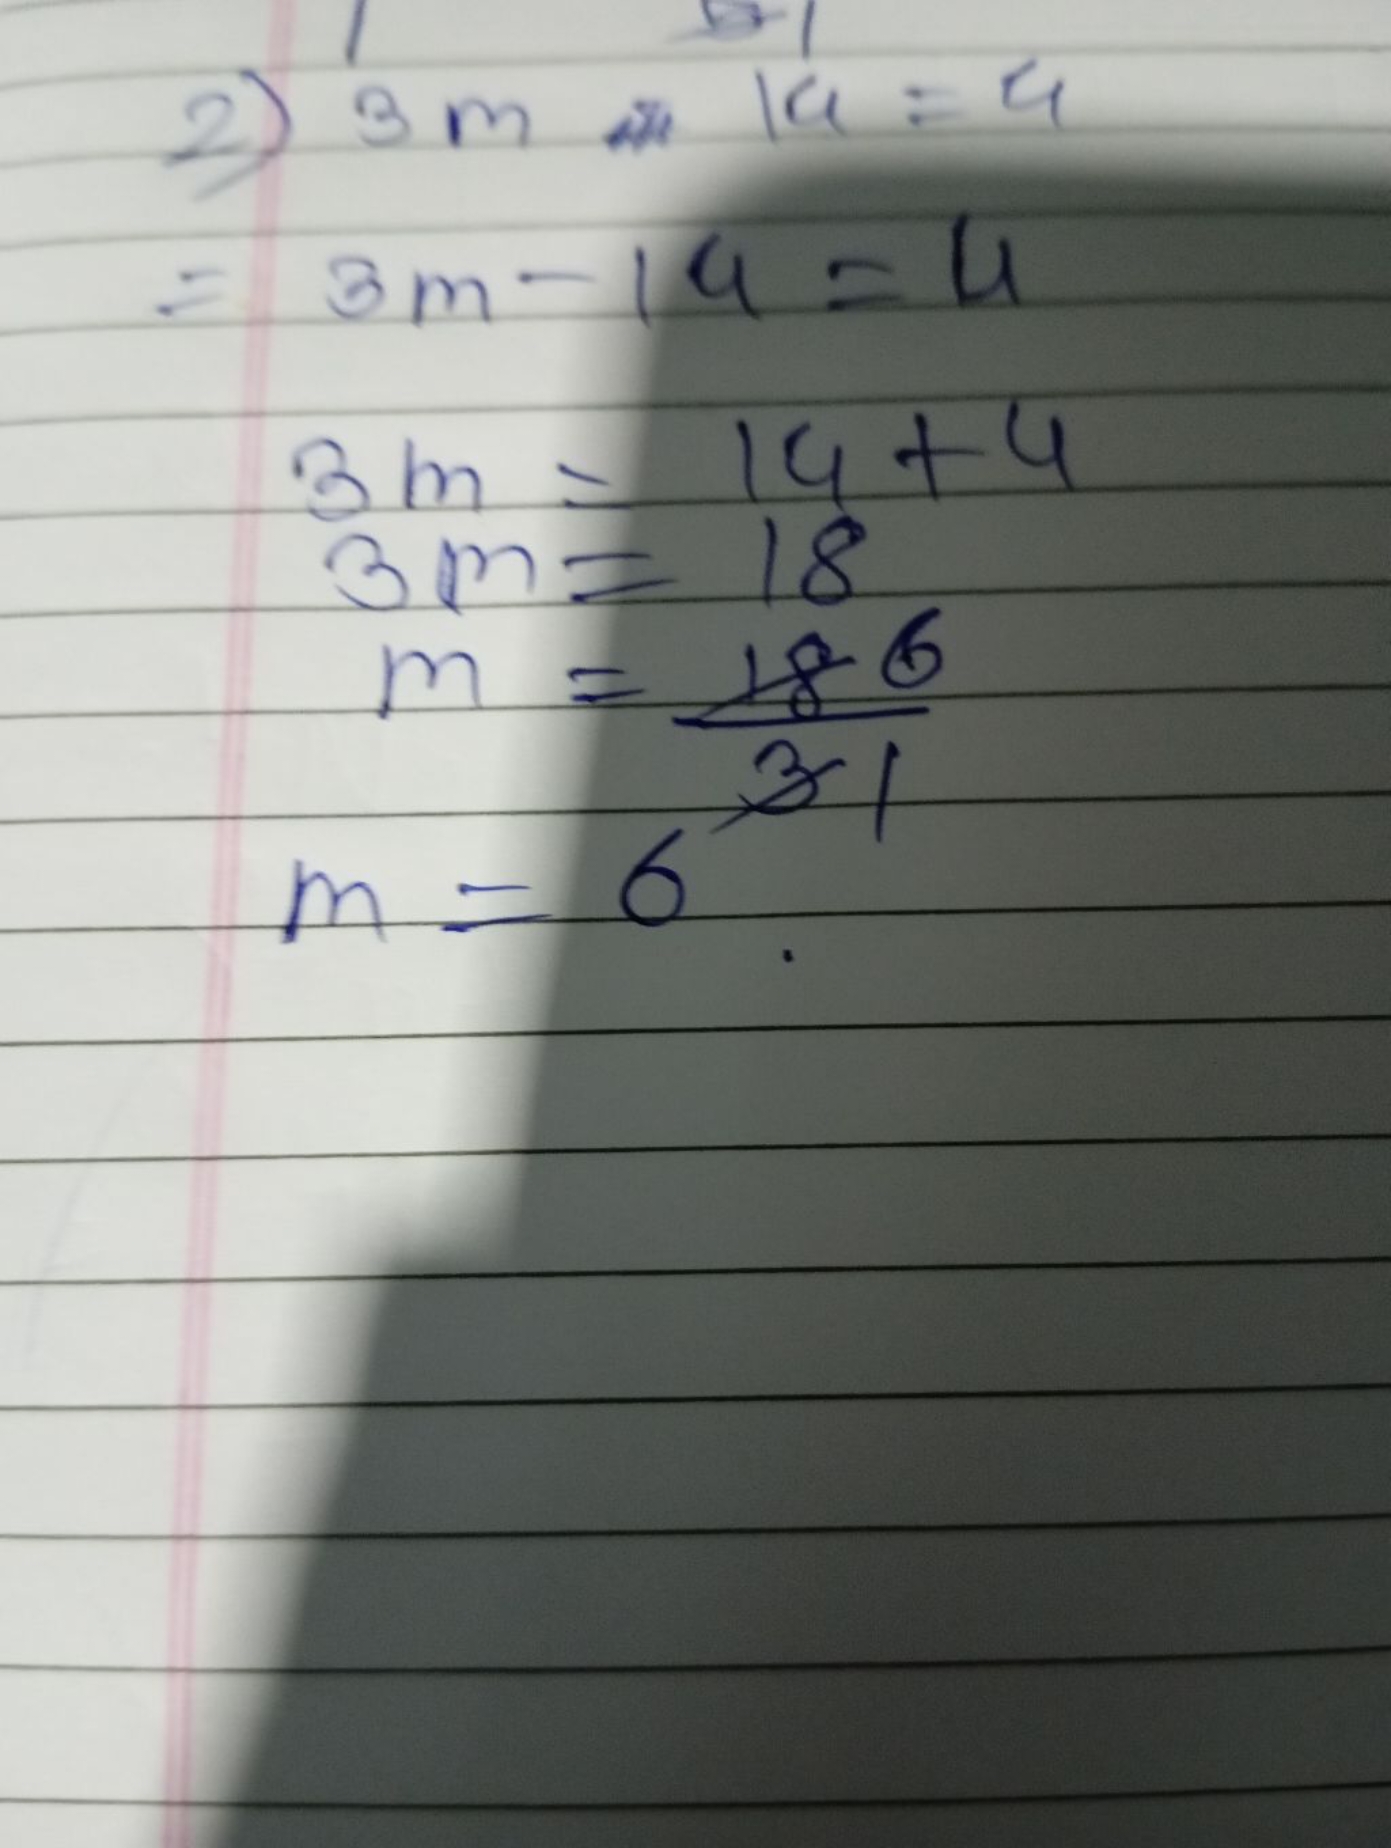 2) 3m - 14 = 4
= 3m - 14 = 4
3m = 14 + 4
3m = 18
m = 18 6
3 1
m = 6